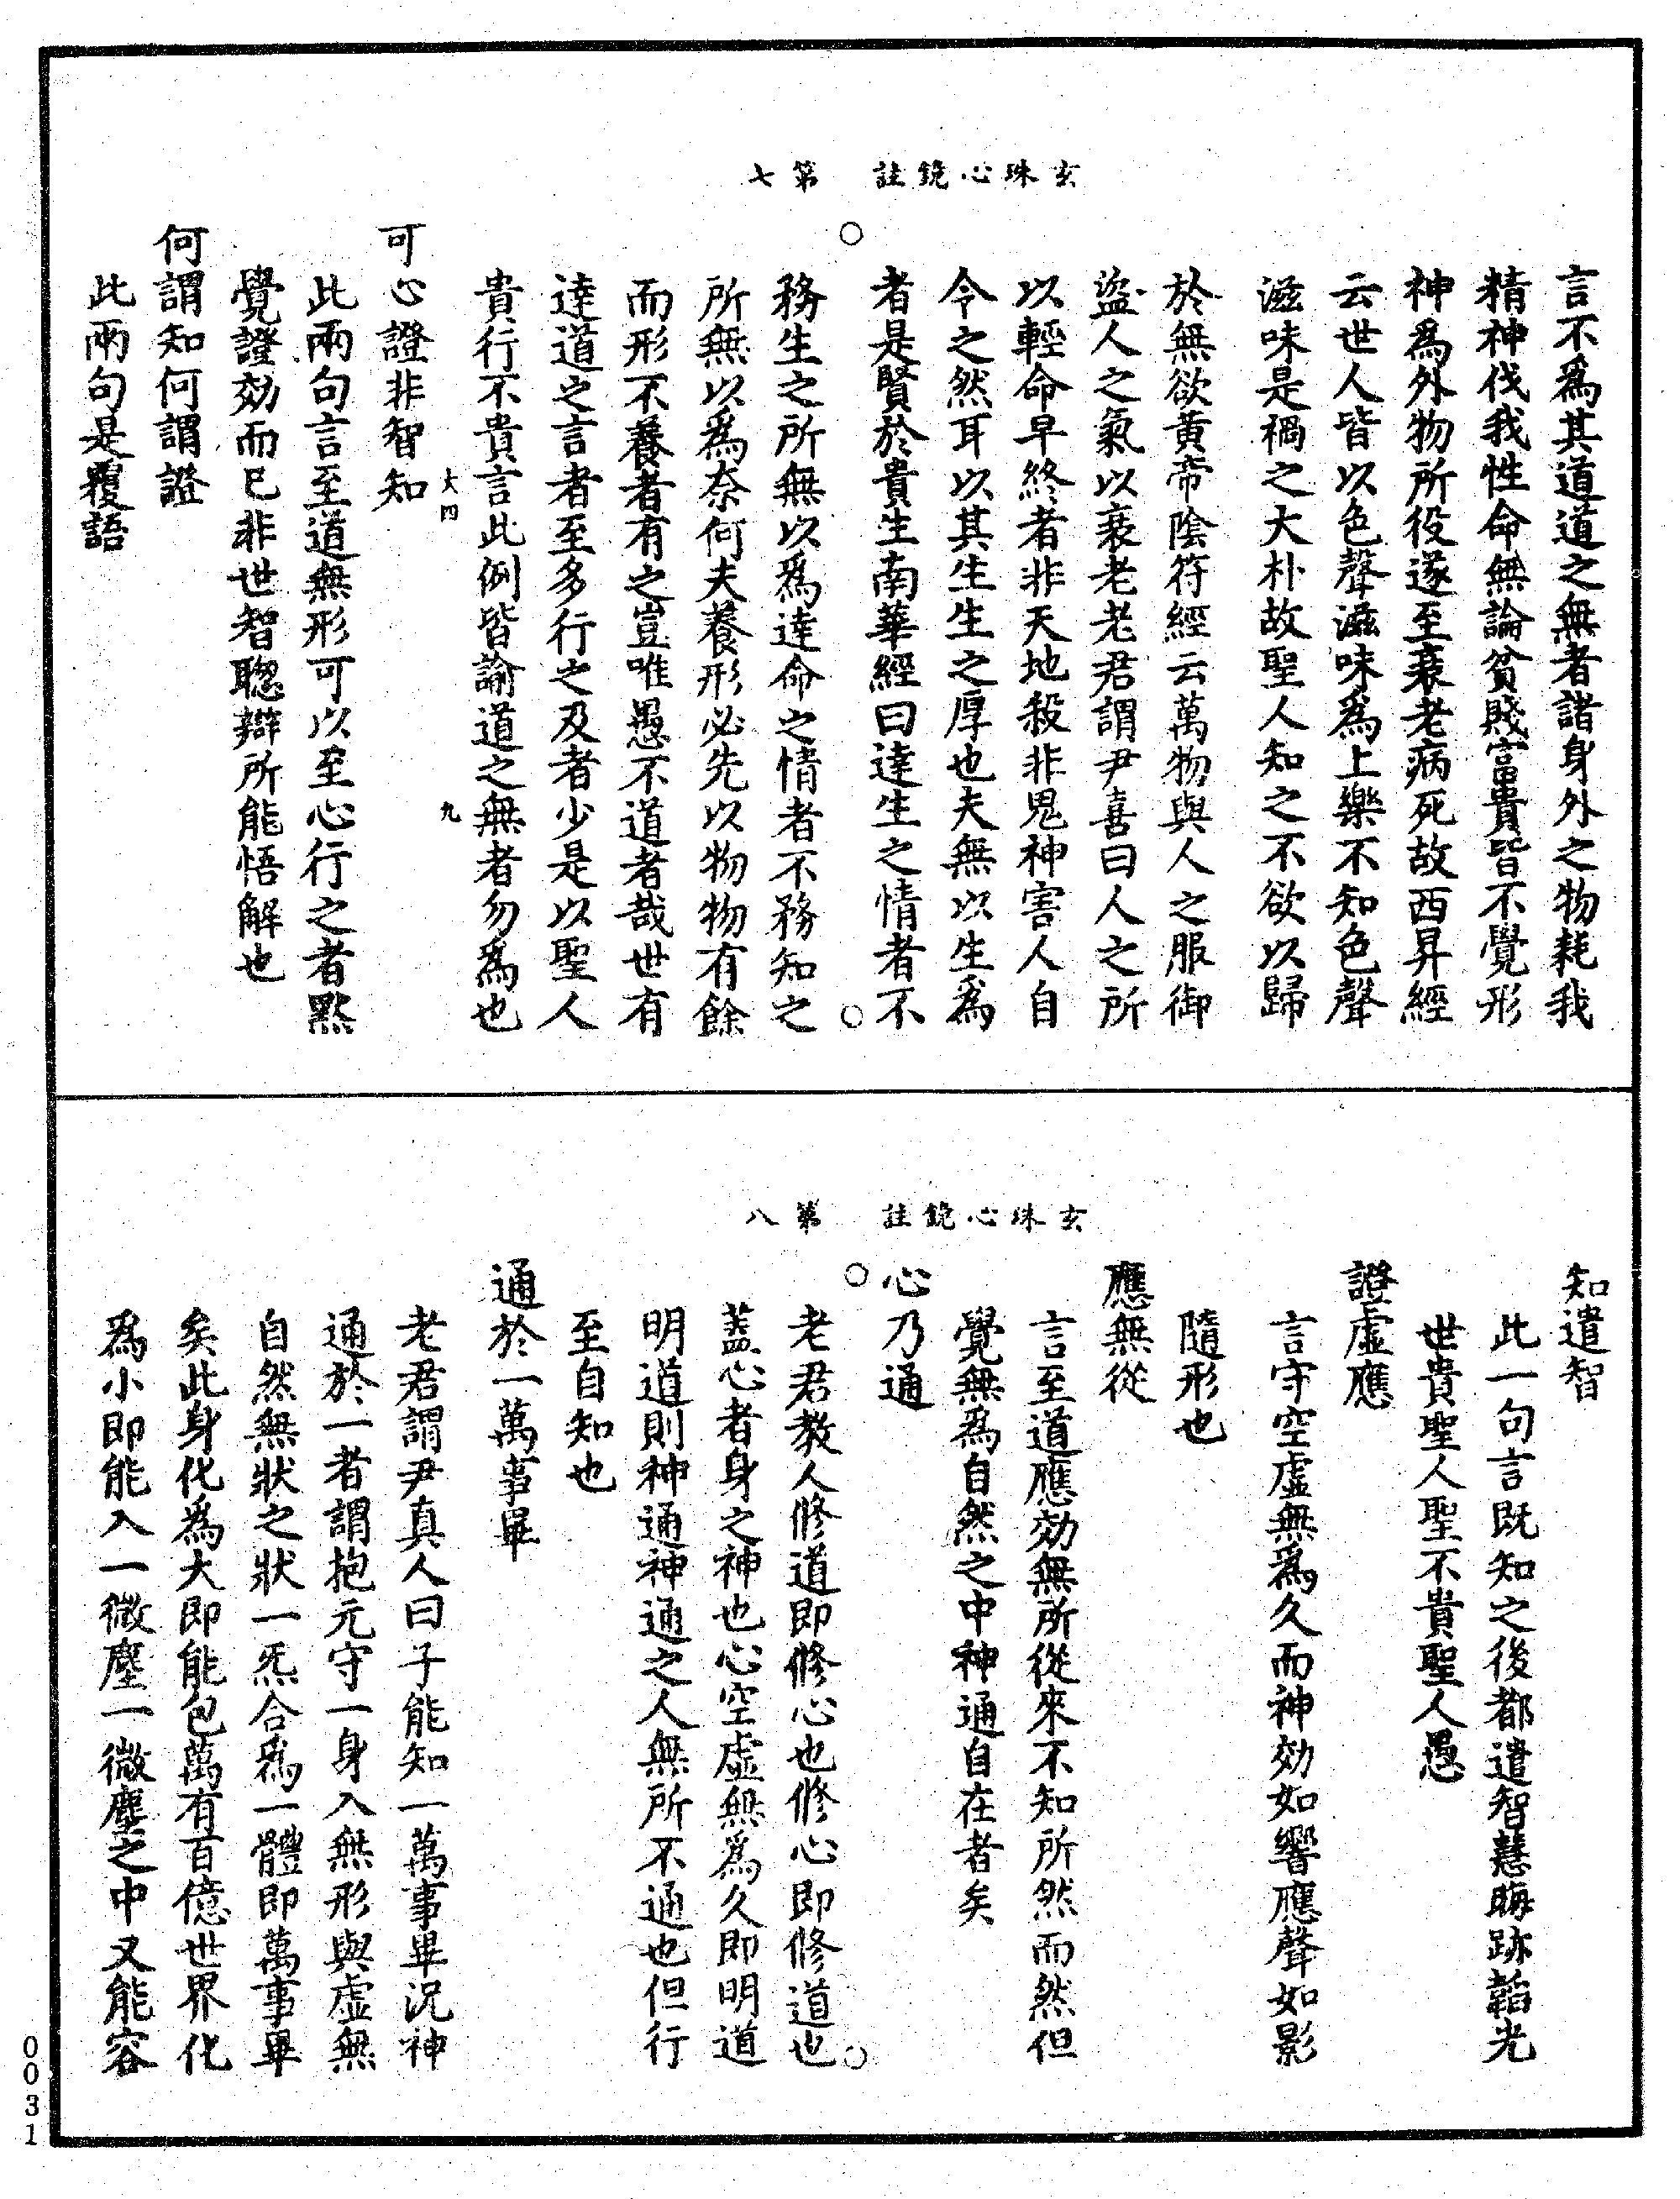 玄珠心鏡註　第七
言不爲其道道之無者諸身外之物耗我
精神伐我性命無論貧賤富貴皆不覺形
神爲外物所役遂至衰老病死故西昇經
云世人皆以色聲滋味爲上樂不知色聲
滋味是禍之大朴故聖人知之不欲以歸
於無欲黄帝陰符經云萬物與人之服御
盜人之氣以衰老老君謂尹喜曰人之所
以輕命早終者非天地殺非鬼神害人自
令之然耳以其生生之厚也夫無以生爲
者是賢於貴生南華經曰達生之情者不
務生之所無以爲達命之情者不務知之
所無以爲奈何夫養形必先以物物有餘
而形不養者有之豈唯愚不道者哉世有
達道之言者至多行之及者少是以聖人
貴行不貴言此例皆諭道之無者勿爲也
大四　九
可心證非智知
此兩句言至道無形可以至心行之者默
覺證効而已非世智聰辯所能悟解也
何謂知何謂證
此兩句是覆語
玄珠心鏡註　第八
知遣智
此一句言既知之後都遣智慧晦跡韜光
世貴聖人聖不貴聖人愚
證虛應
言守空虛無爲久而神効如響應聲如影
隨形也
應無從
言至道應効無所從來不知所然而然但
覺無爲自然之中神通自在者矣
心乃通
老君教人修道即修心也修心即修道也
蓋心者身之神也心空虛無爲久即明道
明道則神通神通之人無所不通也但行
至自知也
通於一萬事畢
老君謂尹真人曰子能知一萬事畢況神
通於一者謂抱元守一身入無形與虛無
自然無狀之狀一炁合爲一體即萬事畢
矣此身化爲大即能包萬有百億世界化
爲小即能入一微塵一微塵之中又能容
0031